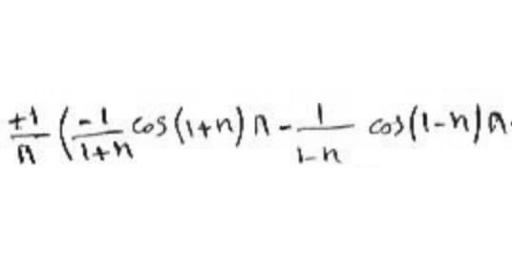 +1/π (-1/1+n cos(1+n)π - 1/1-n cos(1-n)π